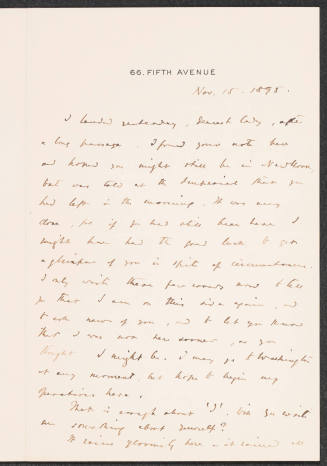 66. FIFTH AVENUE
Nov. 15. 1898.
I landed yesterday, Dearest Lady, after
a long passage. I found your note here
and hoped you might still be in New York,
but was told at the Imperial that you
had left in the morning. It was very
close, for if you had still been here I
might have had the good luck to get
a glimpse of you in spite of circumstances.
I only write these few words now to tell
you that I am on this side again, and
to ask news of you, and to let you know
that I was not here sooner, as you
thought I might be. I may go to Washington
at any moment but hope to begin my
operations here.
That is enough about 'I'. Will you write
me something about yourself?
It rains gloomily here – it rained all